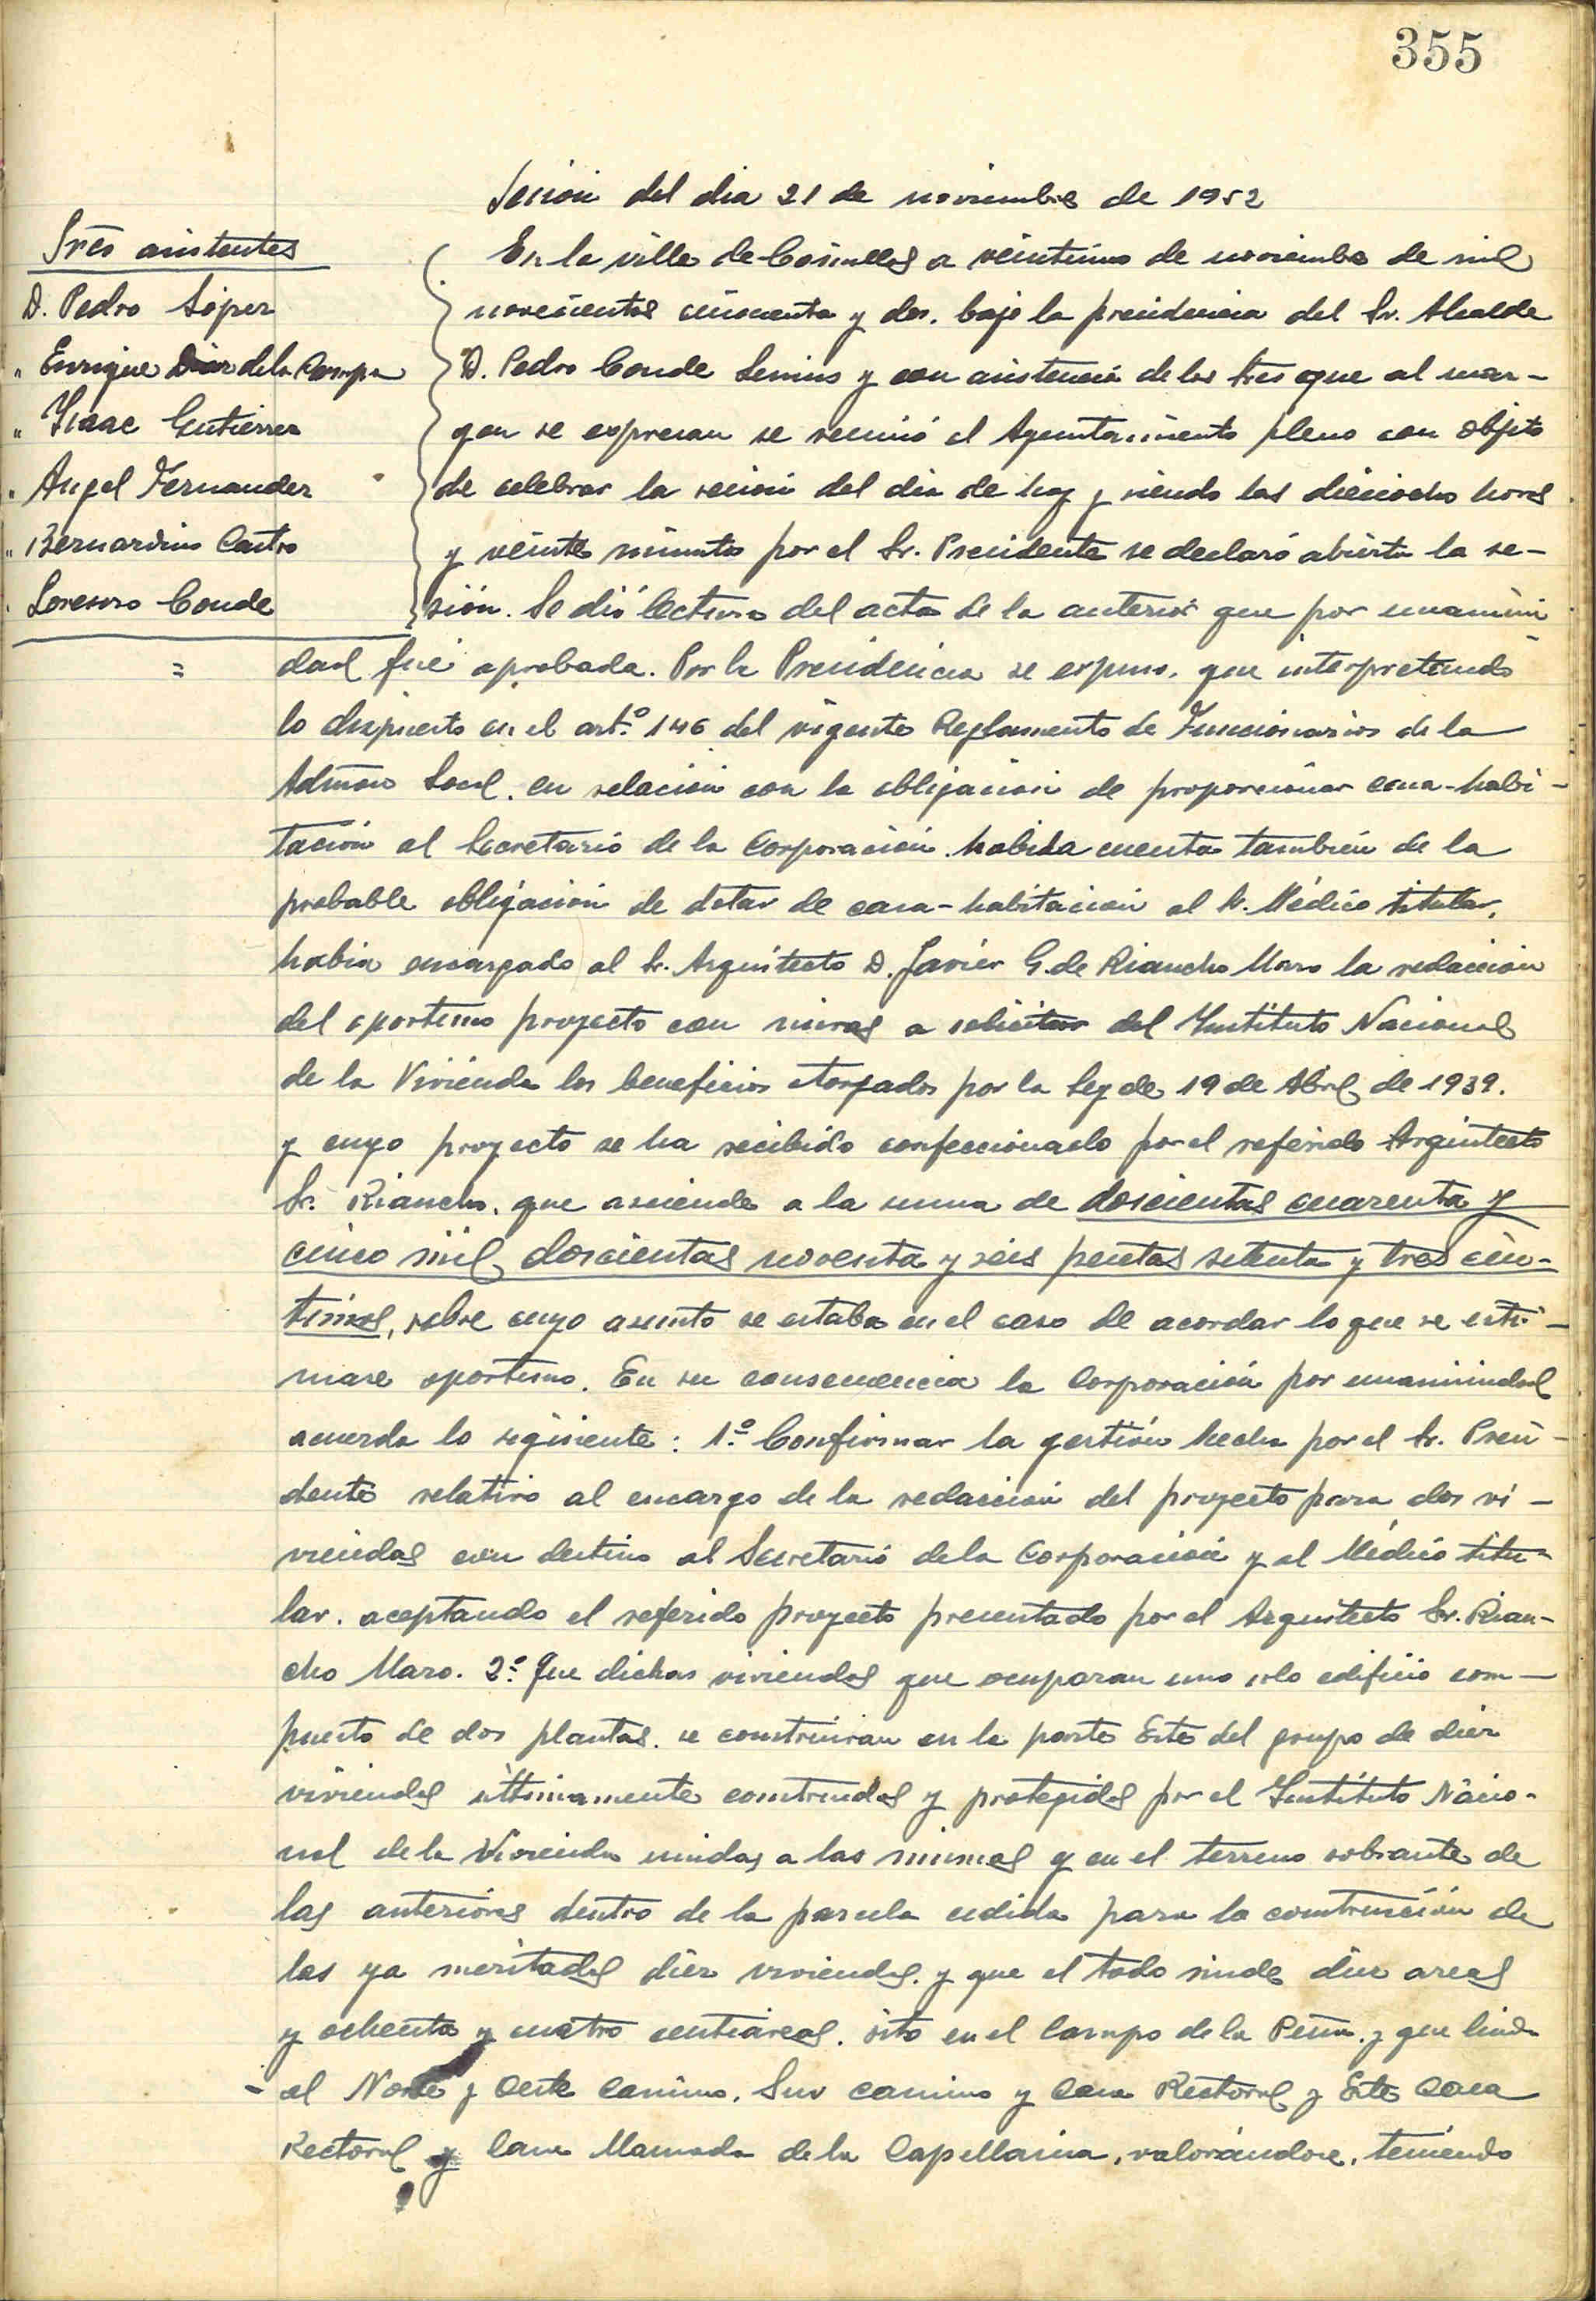 355
Sesión del dia 21 de noviembre de 1952
Sres asistentes
D. Pedro López
" Enrique Diaz de la Campa
" Isaac Gutierrez
" Angel Fernandez
" Bernardino Castro
" Conde
En la villa de Comillas a veintiuno de noviembre de mil
novecientos cincuenta y dos. bajo la presidencia del Sr. Alcalde
D. Pedro Conde y con asistencia de los sres que al mar-
gen se expresan se reunió el Ayuntamiento pleno con objeto
de celebrar la sesion del dia de hoy y siendo las dieciocho horas
y veinte minutos por el Sr. Presidente se declaró abierta la se-
sión. Se dió lectura del acta de la anterior que por unanimi
dad fué aprobada. Por la Presidencia se expuso. que interpretando
lo dispuesto en el artº 146 del vigente Reglamento de Funcionarios de la
Admon Local. en relación con la obligación de proporcionar casa-habi-
tación al Secretario de la Corporación. habida cuenta también de la
probable obligación de dotar de casa-habitación al Sr. Médico titular,
habia encargado al Sr. Arquitecto D. Javier G. de Riancho Mazo la redacción
del oportuno proyecto con miras a solicitar del Instituto Nacional
de la Vivienda los beneficios otorgados por la Ley de 19 de Abril de 1939.
y cuyo proyecto se ha recibido confeccionado por el referido Arquitecto
Sr. Riancho. que asciende a la suma de doscientas cuarenta y
cinco mil doscientas noventa y seis pesetas setenta y tres cén-
timos, sobre cuyo asunto se estaba en el caso de acordar lo que se esti-
mase oportuno. En su consecuencia la Corporación por unanimidad
acuerda lo siguiente: 1º Confirmar la gestión hecha por el Sr. Presi-
dente relativo al encargo de la redacción del proyecto para dos vi-
viendas con destino al Secretario de la Corporación y al Médico titu-
lar. aceptando el referido proyecto presentado por el Arquitecto Sr. Rian-
cho Mazo. 2º Que dichas viviendas que ocuparan uno solo edificio com-
puesto de dos plantas. se construiran en la parte Este del grupo de diez
viviendas últimamente construidas y protegidas por el Instituto Nacio-
nal de la Vivienda unidas a las mismas y en el terreno sobrante de
las anteriores dentro de la parcela cedida para la construcción de
las ya meritadas diez viviendas. y que el todo mide diez areas
y ochenta y cuatro centiáreas. sito en el Campo de la Peña. y que linda
al Norte y Oeste Camino. Sur camino y Casa Rectoral y Este Casa
Rectoral y Casa llamada de la Capellania, valorándose, teniendo